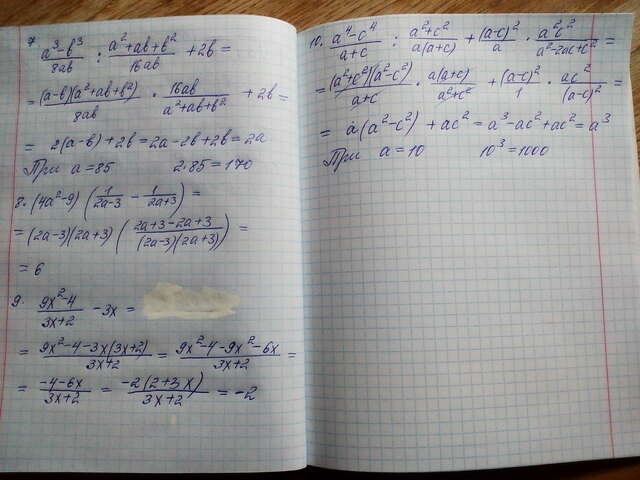 7 (a³-b³)/(8ab) : (a²+ab+b²)/(16ab) + 2b =
= ((a-b)(a²+ab+b²))/(8ab) · (16ab)/(a²+ab+b²) + 2b =
= 2(a-b)+2b = 2a-2b+2b = 2a
При a=85 2·85=170
8. (4a²-9) (1/(2a-3) - 1/(2a+3)) =
= (2a-3)(2a+3) ((2a+3-2a+3)/((2a-3)(2a+3))) =
= 6
9. (9x²-4)/(3x+2) - 3x =
= (9x²-4-3x(3x+2))/(3x+2) = (9x²-4-9x²-6x)/(3x+2) =
= (-4-6x)/(3x+2) = (-2(2+3x))/(3x+2) = -2
10. (a⁴-c⁴)/(a+c) : (a²+c²)/(a(a+c)) + (a-c)²/a · (a²c²)/(a²-2ac+c²) =
= ((a²+c²)(a²-c²))/(a+c) · (a(a+c))/(a²+c²) + (a-c)²/1 · (ac²)/(a-c)² =
= a(a²-c²) + ac² = a³-ac²+ac² = a³
При a=10 10³=1000